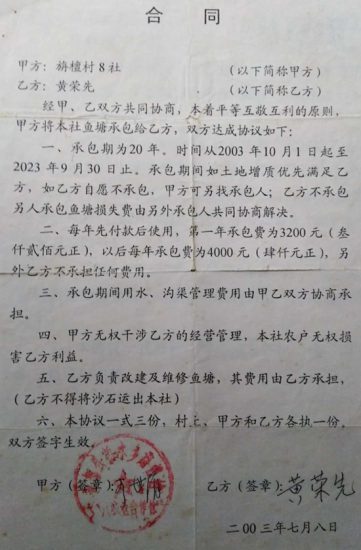 合同
甲方：旃檀村8社 （以下简称甲方）
乙方：黄荣先 （以下简称乙方）
经甲、乙双方共同协商，本着平等互敬互利的原则，
甲方将本社鱼塘承包给乙方，双方达成协议如下：
一、承包期为20年。时间从2003年10月1日起至
2023年9月30日止。承包期间如土地增质优先满足乙
方，如乙方自愿不承包，甲方可另找承包人；乙方不承包
另人承包鱼塘损失费由另外承包人共同协商解决。
二、每年先付款后使用，第一年承包费为3200元（叁
仟贰佰元正），以后每年承包费为4000元（肆仟元正），另
外乙方不承担任何费用。
三、承包期间用水、沟渠管理费用由甲乙双方协商承
担。
四、甲方无权干涉乙方的经营管理，本社农户无权损
害乙方利益。
五、乙方负责改建及维修鱼塘，其费用由乙方承担，
（乙方不得将沙石运出本社）
六、本协议一式三份，村上、甲方和乙方各执一份，
双方签字生效。
甲方（签章） 乙方（签章）：黄荣先
二00三年七月八日